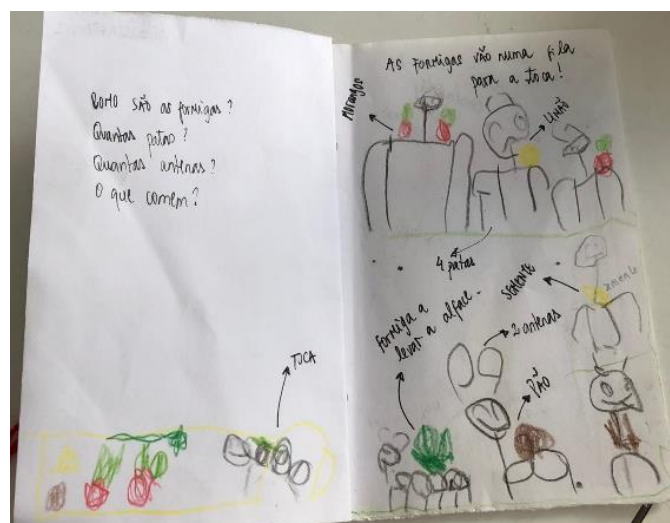 Como são as formigas?
Quantas patas?
Quantas antenas?
O que comem?
TOCA
As formigas vão numa fila
para a toca!
MORANGOS
LIMÃO
4 patas
SEMENTE
formiga a
levar a alface.
2 antenas
PÃO